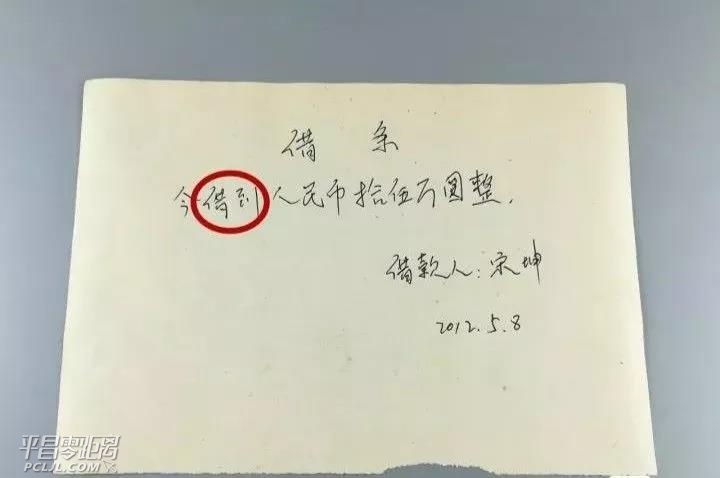 借条
今借到人民币拾伍万圆整.
借款人:宋坤
2012.5.8
平昌零距离
PCLJL.COM